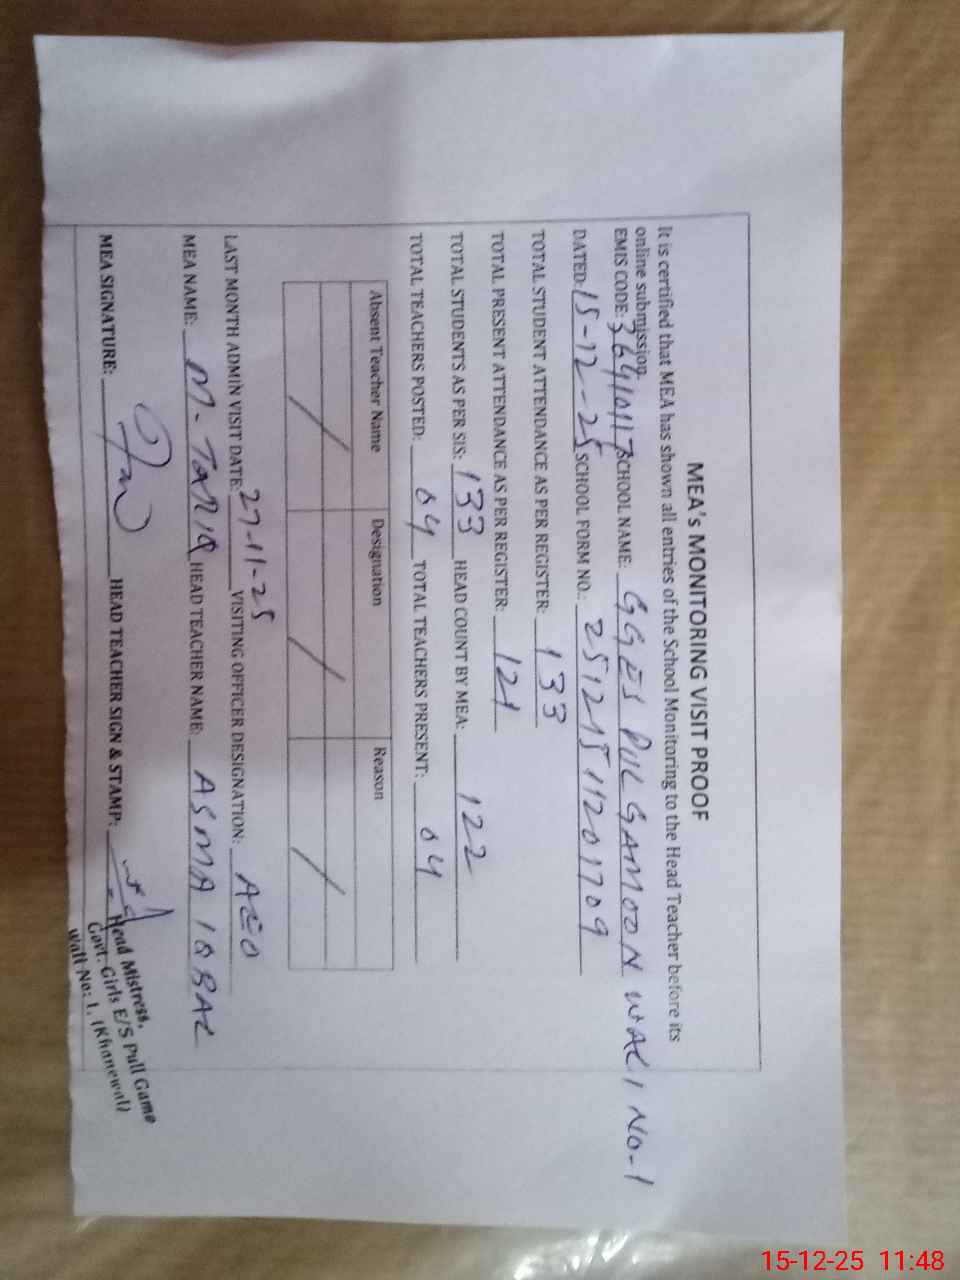 MEA's MONITORING VISIT PROOF
It is certified that MEA has shown all entries of the School Monitoring to the Head Teacher before its
online submission
EMIS CODE: 36410117 SCHOOL NAME: GGES PUL GAMOON WALI NO-1
DATED: 15-12-25 SCHOOL FORM NO.: 25121511201709
TOTAL STUDENT ATTENDANCE AS PER REGISTER: 133
TOTAL PRESENT ATTENDANCE AS PER REGISTER: 121
TOTAL STUDENTS AS PER SIS: 133 HEAD COUNT BY MEA: 122
TOTAL TEACHERS POSTED: 04 TOTAL TEACHERS PRESENT: 04
Absent Teacher Name Designation Reason
/ / /
LAST MONTH ADMIN VISIT DATE: 27-11-25 VISITING OFFICER DESIGNATION: AEO
MEA NAME: M-TARIQ HEAD TEACHER NAME: ASMA IQBAL
MEA SIGNATURE: HEAD TEACHER SIGN & STAMP:
Head Mistress,
Govt. Girls E/S Pull Game
Wali No: 1, (Khanewal)
15-12-25 11:48